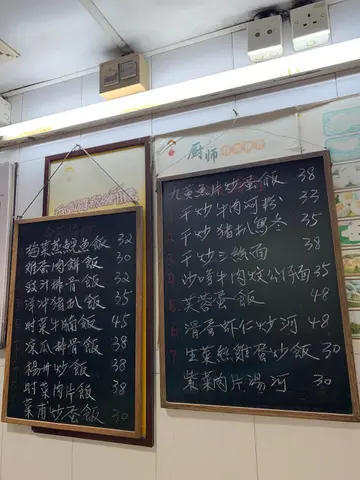 厨师
梅菜蒸鯇魚飯 32
咸蛋肉餅飯 30
豉汁排骨飯 32
洋沖豬扒飯 35
時菜牛腩飯 45
涼瓜排骨飯 38
揚州炒飯 38
時菜肉片飯 38
菜甫炒蛋飯 30
九黃魚片炒蛋飯 38
干炒牛肉河粉 33
干炒豬扒意冬 35
干炒三絲面 38
沙嗲牛肉炆公仔面 35
芙蓉蛋飯 48
滑蛋虾仁炒河 48
生菜絲雞蛋炒飯 30
紫菜肉片湯河 30